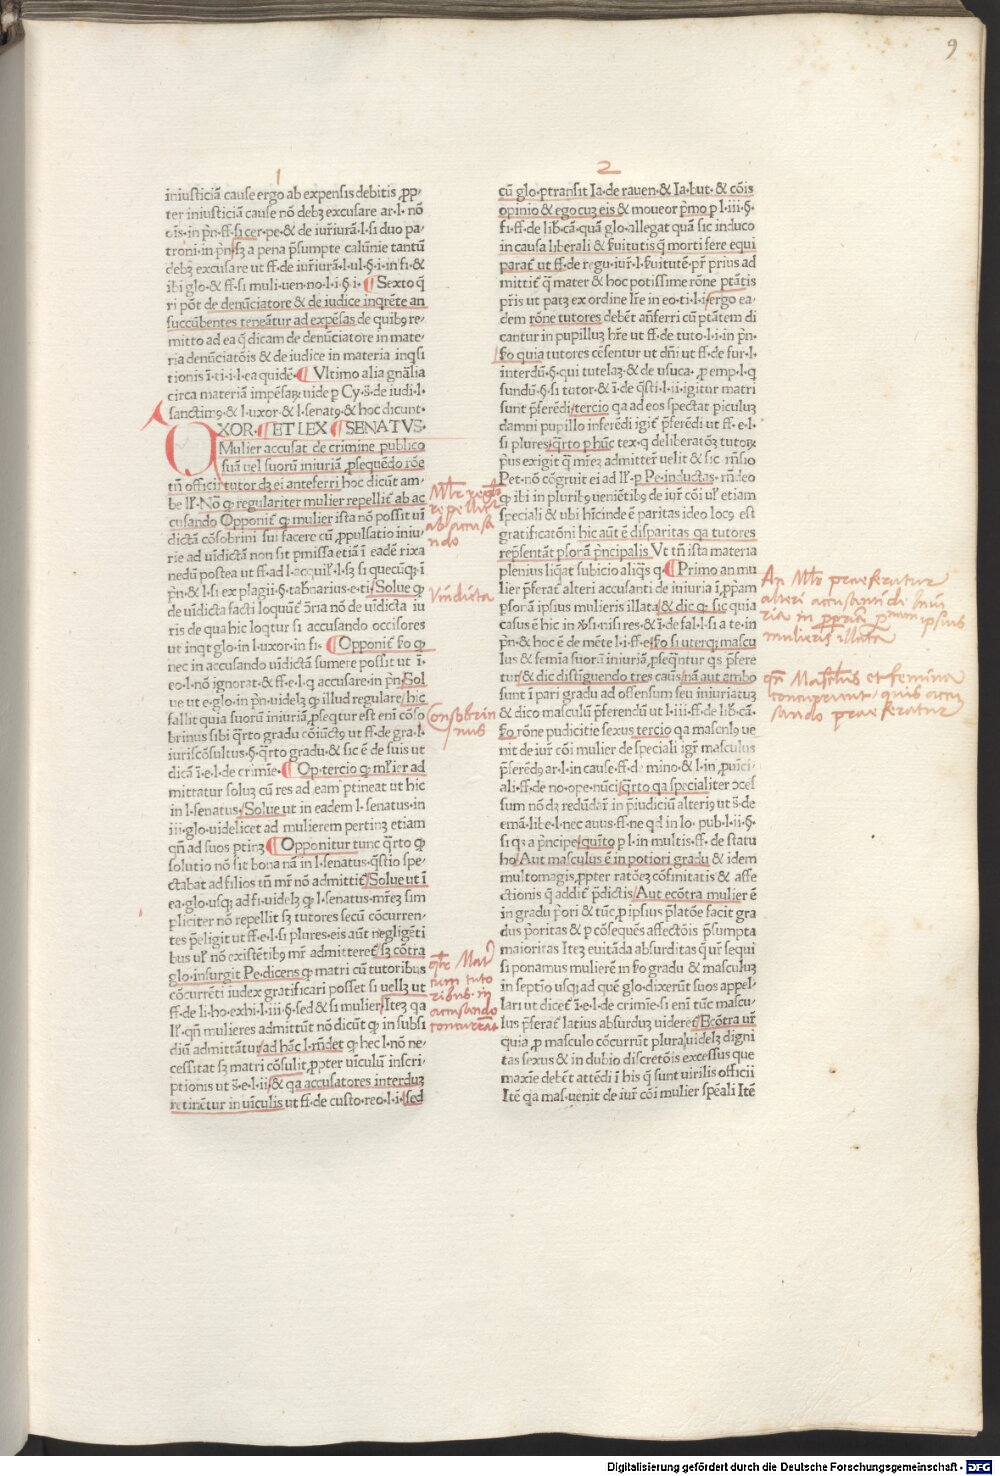 9
1
iniusticiā cause ergo ab expensis debitis ꝓp-
ter iniusticiā cause nō debꝫ excusare ar·l·nō
oīs·in pr̄n·ff·si cer·pe·& de iur̄iurā·l·si duo pa-
troni·in pr̄n·/sꝫ a pena p̄sumpte calūnie tantū
debꝫ excusare ut ff·de iur̄iurā·l·ul·§·i·in fi·&
ibi glo·& ff·si muli·uen·no·l·i·§·i· ¶ Sexto q̄
ri pōt de denūciatore & de iudice inqrēte an
succūbentes teneātur ad expēsas de quibꝯ re-
mitto ad ea q̄ dicam de denūciatore in mate-
ria denūciatōis & de iudice in materia inqsi
tionis ī·ti·i·l·ea quidē· ¶ Vltimo alia gn̄alia
circa materiā impēsaꝝ uide p Cy·s̄·de iudi·l·
sanctimꝯ·& l·uxor·& l·senatꝯ·& hoc dicunt·
VXOR· ¶ ET LEX ¶ SENATVS·
Mulier accusat de crimine publico
suā uel suorū iniuriā ꝓsequēdo rōe
tn̄ officii tutor dꝫ ei anteferri hoc dicūt am-
be ll'· Nō ꝙ regulariter mulier repellit̄ ab ac
cusando Opponit̄ ꝙ mulier ista nō possit uī
dictā cōsobrini sui facere cū ꝓpulsatio iniu-
rie ad uīdictā non sit pmissa etiā ī eadē rixa
nedū postea ut ff·ad l·acquil'·l·sꝫ si quecūqꝫ·ī
pr̄n·& l·si ex plagii·§·tabnarius·e·ti·/Solue ꝙ
de uīdicta facti loquūt̄ ōria nō de uīdicta iu
ris de qua hic loqtur si accusando occisores
ut inqt glo·in l·uxor·in fi· ¶ Opponit̄ ẜo ꝙ
nec in accusando uīdictā sumere possit ut ī·
eo·l·nō ignorat·& ff·e·l·q accusare·in pr̄n·/Sol
ue ut e·glo·in pr̄n·uidelꝫ ꝙ illud regulare/hic
fallit quia suorū iniuriā ꝓseqtur est enī cōso
brinus sibi qrto gradu cōiūctꝯ ut ff·de gra·l·
iuriscōsultus·§·qrto gradu·& sic ē de suis ut
dicā ī·e·l·de crimīe· ¶ Op·tercio ꝙ mlier ad
mittatur soluꝫ cū res ad eam ptineat ut hic
in l·senatus·/Solue ut in eadem l·senatus·in
iii·glo·uidelicet ad mulierem pertinꝫ etiam
qn̄ ad suos ptinꝫ ¶ Opponitur tunc qrto ꝙ
solutio nō sit bona nā in l·senatus·qstio spe-
ctabat ad filios tn̄ mr̄ nō admittit̄/Solue ut ī
ea·glo·usqꝫ ad fi·uidelꝫ ꝙ l·senatus·mrēꝫ sim
pliciter nō repellit sꝫ tutores secū cōcurren-
tes p̄eligit ut ff·e·l·si plures·eis aūt negligēti
bus ul' nō existētibꝯ mr̄ admitteret̄/sꝫ cōtra
glo·insurgit Pe·dicens ꝙ matri cū tutoribus
cōcurrēti iudex gratificari posset si uellꝫ ut
ff·de li·ho·exhi·l·iii·§·sed & si mulier/Iteꝫ qa
ll'·qn̄ mulieres admittūt nō dicūt ꝙ in subsi
diū admittātur/ad hāc l·rn̄det ꝙ hec l·nō ne-
cessitat sꝫ matri cōsulit ꝓpter uīculū inscri-
ptionis ut s̄·e·l·ii/& qa accusatores interduꝫ
retinētur in uīculis ut ff·de custo·reo·l·i·/sed
2
cū glo·ptransit Ia·de rauen·& Ia·but·& cōis
opinio & ego cuꝫ eis & moueor p̄mo p l·iii·§·
fi·ff·de lib·cā·quā glo·allegat quā sic induco
in causa liberali & ẜuitutis q̄ morti fere equi
parat̄ ut ff·de regu·iur̄·l·ẜuitutē·pr̄ prius ad
mittit̄ q̄ mater & hoc potissime rōne ptātis
pr̄is ut patꝫ ex ordine lr̄e in eo·ti·l·i·/ergo ea-
dem rōne tutores debēt an̄ferri cū ptātem di
cantur in pupilluꝫ hr̄e ut ff·de tuto·l·i·in pr̄n·
/ẜo quia tutores cēsentur ut dn̄i ut ff·de fur·l·
interdū·§·qui tutelaꝫ·& de usuca·ꝓ emp·l·q
fundū·§·si tutor·& ī·de qsti·l·ii·igitur matri
sunt p̄ferēdi/tercio qa ad eos spectat piculuꝫ
damni pupillo inferēdi igit̄ p̄feredi ut ff·e·l·
si plures/qrto p hūc tex·q deliberatōꝫ tutoꝝ
p̄us exigit q̄ mrēꝫ admitter̄ uelit & sic rn̄sio
Pet·nō cōgruit ei ad ll'·p Pe·inductas·rn̄deo
ꝙ ibi in pluribꝯ ueniētibꝯ de iur̄ cōi ul' etiam
speciali & ubi hīcinde ē paritas ideo locꝯ est
gratificatōni hic aūt ē disparitas qa tutores
rep̄sentāt psorā p̄ncipalis Vt tn̄ ista materia
plenius liqat subicio aliqs q· ¶ Primo an mu
lier p̄ferat̄ alteri accusanti de iniuria ī ꝓpam
psorā ipsius mulieris illata/& dic ꝙ sic quia
casus ē hic in ẋ·si·nisi res·& ī·de fal·l·si a te·in
pr̄n·& hoc ē de mēte l·i·ff·e·/ẜo si uterqꝫ mascu
lus & femīa suorā iniuriā ꝓseqntur qs p̄fere
tur/& dic distiguendo tres caūs/nā aut ambo
sunt ī pari gradu ad offensum seu iniuriatuꝫ
& dico masculū p̄ferendū ut l·iii·ff·de lib·cā·
ẜo rōne pudicitie sexus tercio qa masculꝯ ue
nit de iur̄ cōi mulier de speciali igr̄ masculus
p̄ferēdꝯ ar·l·in cause·ff·d·mino·& l·in ꝓuīci-
ali·ff·de no·ope·nūci/qrto qa specialiter ɔces
sum nō dꝫ redūdar̄ in p̄iudiciū alterīꝯ ut s̄·de
emā·libe·l·nec auus·ff·ne qd in lo·pub·l·ii·§·
si qꝫ a p̄ncipe/quīto p l·in multis·ff·de statu
ho/Aut masculus ē in potiori gradu & idem
multomagis ꝓpter ratōeꝫ cōfinitatis & affe
ctionis q̄ addit̄ p̄dictis/Aut ecōtra mulier ē
in gradu p̄ori & tūc ꝓ ipsius p̄latōe facit gra
dus p̄oritas & p cōsequēs affectōis p̄sumpta
maioritas Iteꝫ euitāda absurditas q̄ ur̄ sequi
si ponamus mulierē in ẜo gradu & masculuꝫ
in septīo usqꝫ ad quē glo·dixerūt suos appel-
lari ut dicet̄ ī·e·l·de crimīe·si enī tūc mascu-
lus p̄ferat̄ latius absurduꝫ uideret̄/Ecōtra ur̄
quia ꝓ masculo cōcurrūt plura/uidelꝫ digni
tas sexus & in dubio discretōis excessus que
maxīe debēt attēdi ī his q̄ sunt uirilis officii
Itē qa mas·uenit de iur̄ cōi mulier spēali Itē
repellitur
ab accusa
ndo
Vindicta
Consobrin
nus
tum tuto
ribus in
accusando
concurrāt
An Mlr praeferatur
alteri accusanti de Iniu
ria in ꝓpriā psonam ipsius
mulieris illata
qn̄ Masclus et femina
concurrunt, quis accu
sando praeferatur
Digitalisierung gefördert durch die Deutsche Forschungsgemeinschaft - DFG